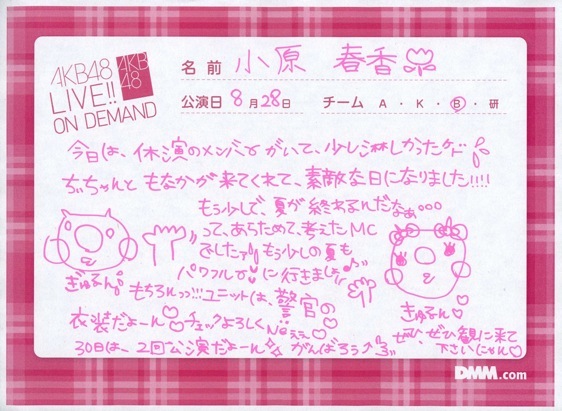 AKB48
LIVE!!
ON DEMAND
AKB
48
名前 小原 春香
公演日 8月28日 チーム A・K・B・研
今日は、休演のメンバーがいて、少し淋しかったケド
ぢぃちゃんと もなかが来てくれて、素敵な日になりました!!!!
もう少しで、夏が終わるんだなぁ。。。
って、あらためて、考えたMC
でしたァ♪ もう少しの夏も
パワフルで♥に行きましょ♪
ぎゅるん♪
もちろんっっ!!!ユニットは、警官の
衣装だよーん♡チェックよろしく
30日は、2回公演だよーん がんばろう
きゅるん♡
ぜひ、ぜひ観に来て
下さいにゃん♡
DMM.com